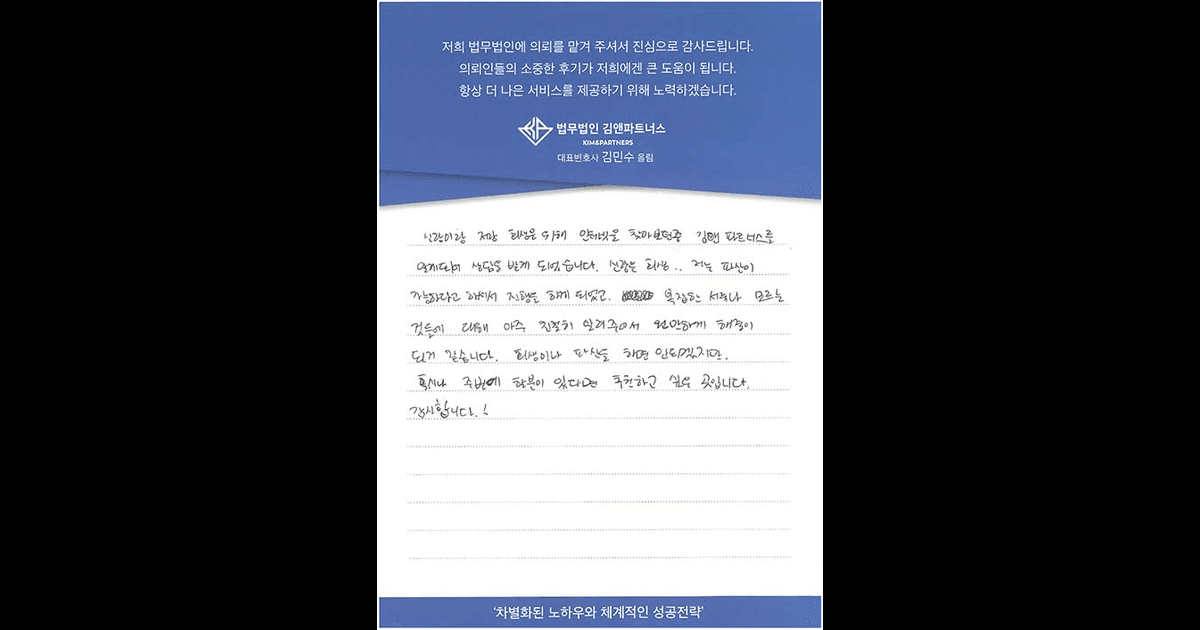 저희 법무법인에 의뢰를 맡겨 주셔서 진심으로 감사드립니다.
의뢰인들의 소중한 후기가 저희에겐 큰 도움이 됩니다.
항상 더 나은 서비스를 제공하기 위해 노력하겠습니다.
법무법인 김앤파트너스
KIM&PARTNERS
대표변호사 김민수 올림
신랑이랑 저랑 회생을 위해 인터넷을 찾아보던중 김앤 파트너스를
알게되어 상담을 받게 되었습니다. 신랑은 회생.. 저는 파산이
가능하다고 하셔서 진행을 하게 되었고. 복잡한 서류나 모르는
것들에 대해 아주 친절히 알려주셔서 원만하게 해결이
된거 같습니다. 회생이나 파산을 하면 안되겠지만.
혹시나 주변에 할분이 있다면 추천하고 싶은 곳입니다.
감사합니다.!
'차별화된 노하우와 체계적인 성공전략'